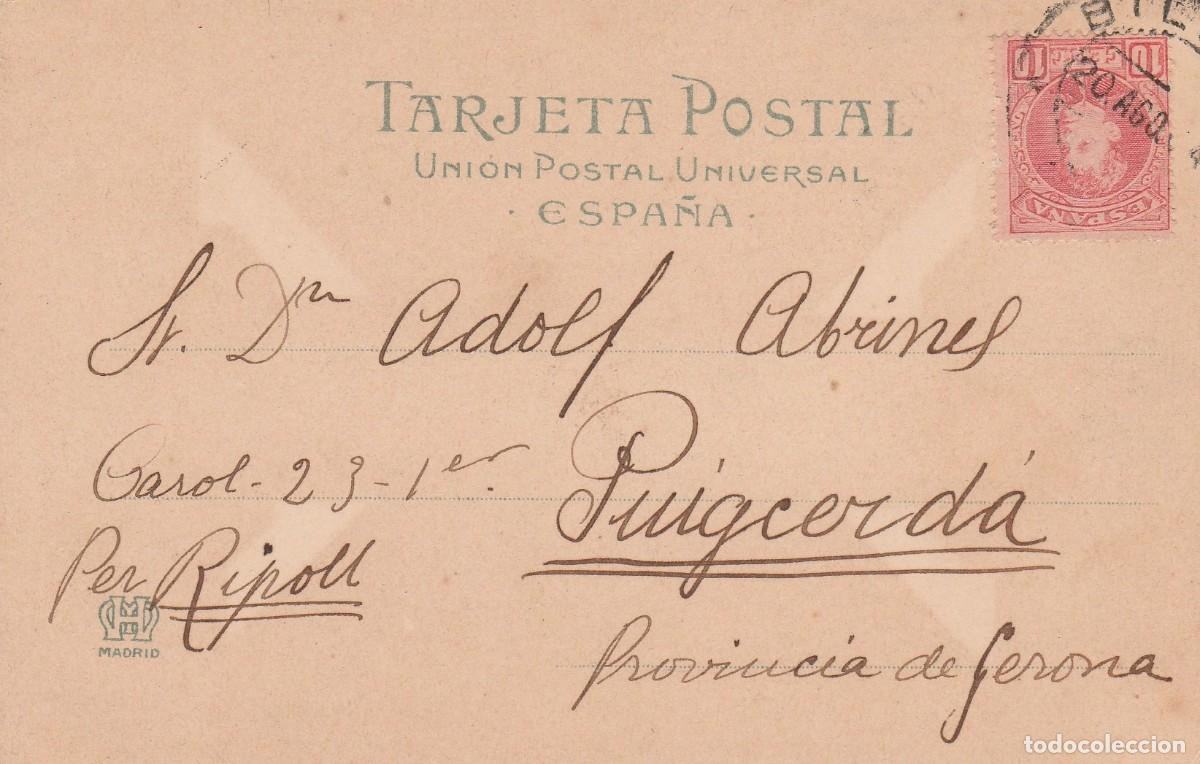 TARJETA POSTAL
UNIÓN POSTAL UNIVERSAL
· ESPAÑA ·
10 CENTS 10
ESPAÑA
20 AGO
Sr. Dn Adolf Abrines
Carol - 23 - 1er.
Puigcerdá
Per Ripoll
Provincia de Gerona
HM
MADRID
todocoleccion